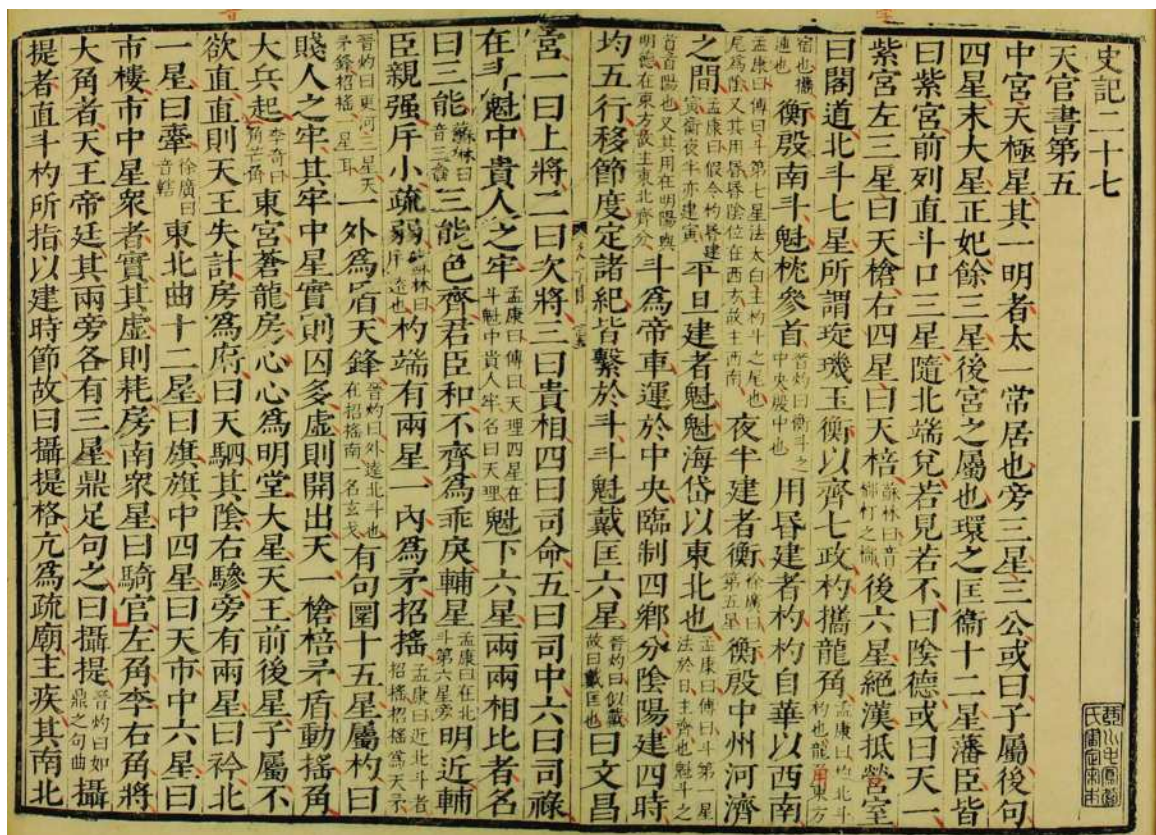 史記二十七
天官書第五
中宮天極星其一明者太一常居也旁三星三公或曰子屬後句
四星末大星正妃餘三星後宮之屬也環之匡衞十二星藩臣皆
曰紫宮前列直斗口三星隨北端兌若見若不曰陰德或曰天一
紫宮左三星曰天槍右四星曰天棓蘇林曰音打之後六星絕漢抵營室
曰閣道北斗七星所謂琁璣玉衡以齊七政杓攜龍角孟康曰杓北斗杓也龍角東方
宿也攜連也衡殷南斗魁枕參首晉灼曰衡斗之中央殷中也用昬建者杓杓自華以西南
孟康曰傳曰斗第七星法太白主杓斗之尾也尾爲陰又其用昬昬陰位在西方故主西南夜半建者衡徐廣曰第五星衡殷中州河濟
之間孟康曰假令杓昬建寅衡夜半亦建寅平旦建者魁魁海岱以東北也孟康曰傳曰斗第一星法於日主齊也魁斗之
首首陽也又其用在明陽與明德在東方故主東北齊分斗爲帝車運於中央臨制四鄉分陰陽建四時
均五行移節度定諸紀皆繫於斗斗魁戴匡六星晉灼曰似戴故曰戴匡也曰文昌
宮一曰上將二曰次將三曰貴相四曰司命五曰司中六曰司祿
在斗魁中貴人之牢孟康曰傳曰天理四星在斗魁中貴人牢名曰天理魁下六星兩兩相比者名
曰三能蘇林曰音三台三能色齊君臣和不齊爲乖戾輔星孟康曰在北斗第六星旁明近輔
臣親强斥小疏弱蘇林曰斥遠也杓端有兩星一內爲矛招搖孟康曰近北斗者招搖招搖爲天矛
晉灼曰更河三星天矛鋒招搖一星耳一外爲盾天鋒晉灼曰外遠北斗也在招搖南一名玄戈有句圜十五星屬杓曰
賤人之牢其牢中星實則囚多虛則開出天一槍棓矛盾動搖角
大兵起李奇曰角芒角東宮蒼龍房心心爲明堂大星天王前後星子屬不
欲直直則天王失計房爲府曰天駟其陰右驂旁有兩星曰衿北
一星曰舝徐廣曰音轄東北曲十二星曰旗旗中四星曰天市中六星曰
市樓市中星眾者實其虛則耗房南眾星曰騎官左角李右角將
大角者天王帝廷其兩旁各有三星鼎足句之曰攝提晉灼曰如鼎之句曲攝
提者直斗杓所指以建時節故曰攝提格亢爲疏廟主疾其南北